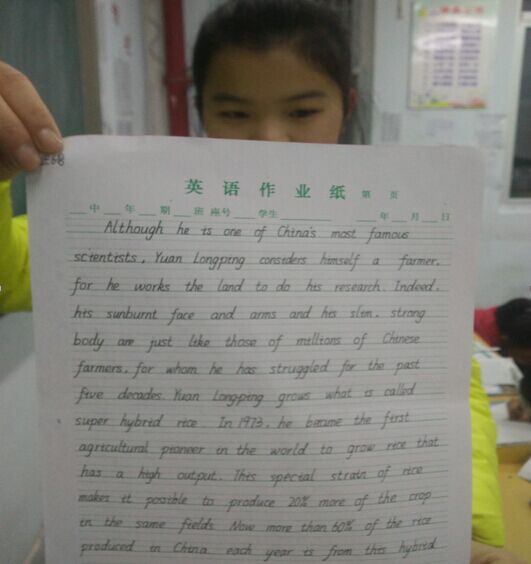 英语作业纸 第 页
中 年 期 班 座号 学生 年 月 日
Although he is one of China's most famous
scientists, Yuan Longping considers himself a farmer,
for he works the land to do his research. Indeed,
his sunburnt face and arms and his slim, strong
body are just like those of millions of Chinese
farmers, for whom he has struggled for the past
five decades. Yuan Longping grows what is called
super hybrid rice. In 1973, he became the first
agricultural pioneer in the world to grow rice that
has a high output. This special strain of rice
makes it possible to produce 20% more of the crop
in the same fields Now more than 60% of the rice
produced in China each year is from this hybrid